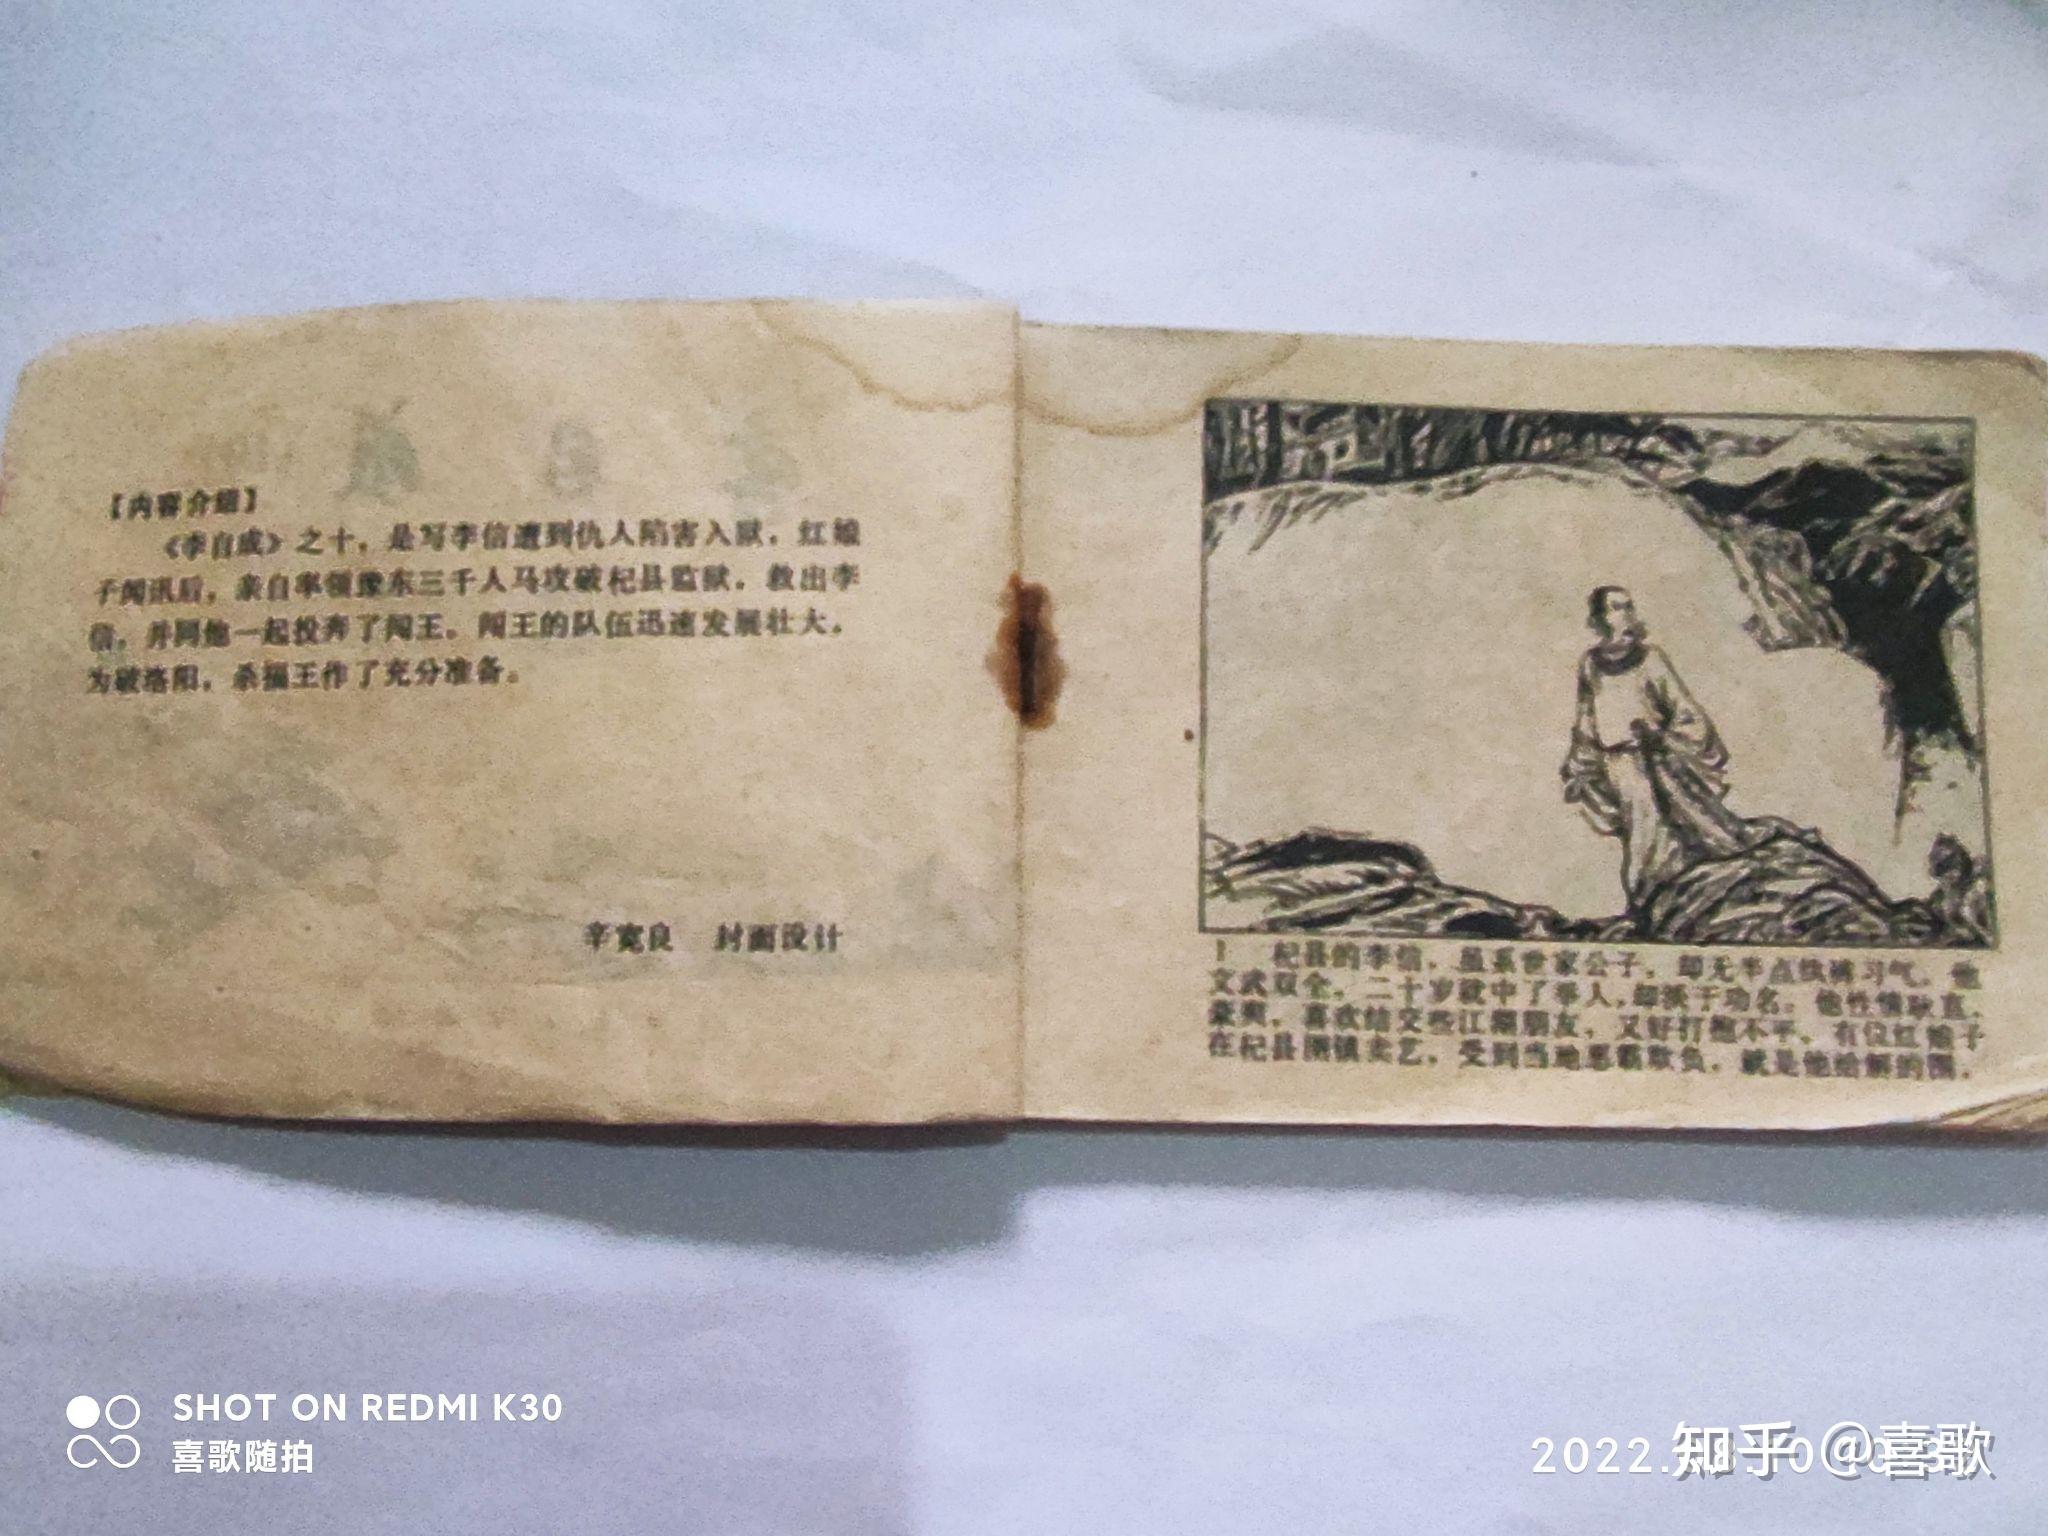 【内容介绍】
《李自成》之十，是写李信遭到仇人陷害入狱，红娘
子闻讯后，亲自率领豫东三千人马攻破杞县监狱，救出李
信，并同他一起投奔了闯王。闯王的队伍迅速发展壮大，
为破洛阳，杀福王作了充分准备。
辛宽良 封面设计
1 杞县的李信，虽系世家公子，却无半点纨裤习气，他
文武双全，二十岁就中了举人，却淡于功名。他性情耿直、
豪爽，喜欢结交些江湖朋友，又好打抱不平。有位红娘子
在杞县圉镇卖艺，受到当地恶霸欺负，就是他给解的围。
SHOT ON REDMI K30
喜歌随拍
2022.
知乎 @喜歌